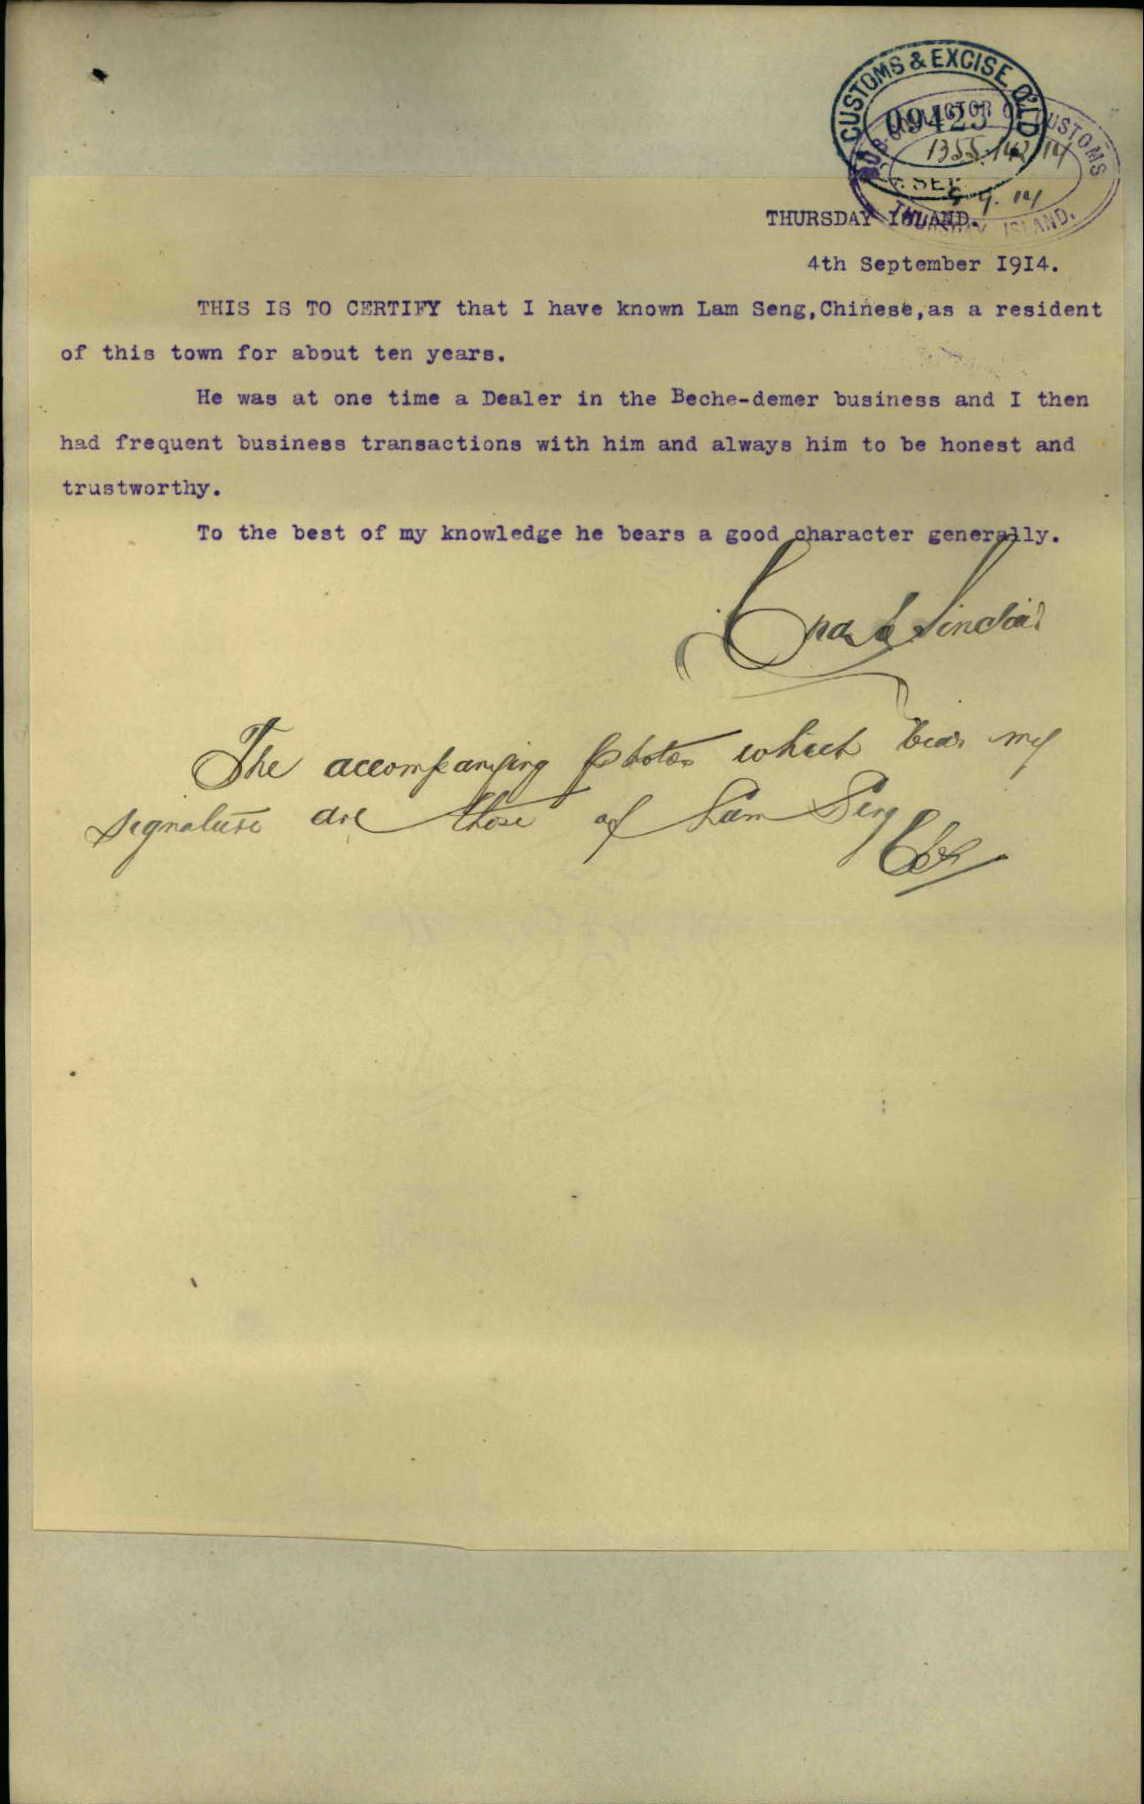 CUSTOMS & EXCISE Q'LD
09423
SUB COLLECTOR OF CUSTOMS
1355/142/14
SEP
5.9.14
THURSDAY ISLAND.
THURSDAY ISLAND.
4th September 1914.
THIS IS TO CERTIFY that I have known Lam Seng,Chinese,as a resident
of this town for about ten years.
He was at one time a Dealer in the Beche-demer business and I then
had frequent business transactions with him and always him to be honest and
trustworthy.
To the best of my knowledge he bears a good character generally.
Sinclair
The accompanying photos which bear my
signature are those of Lam Seng